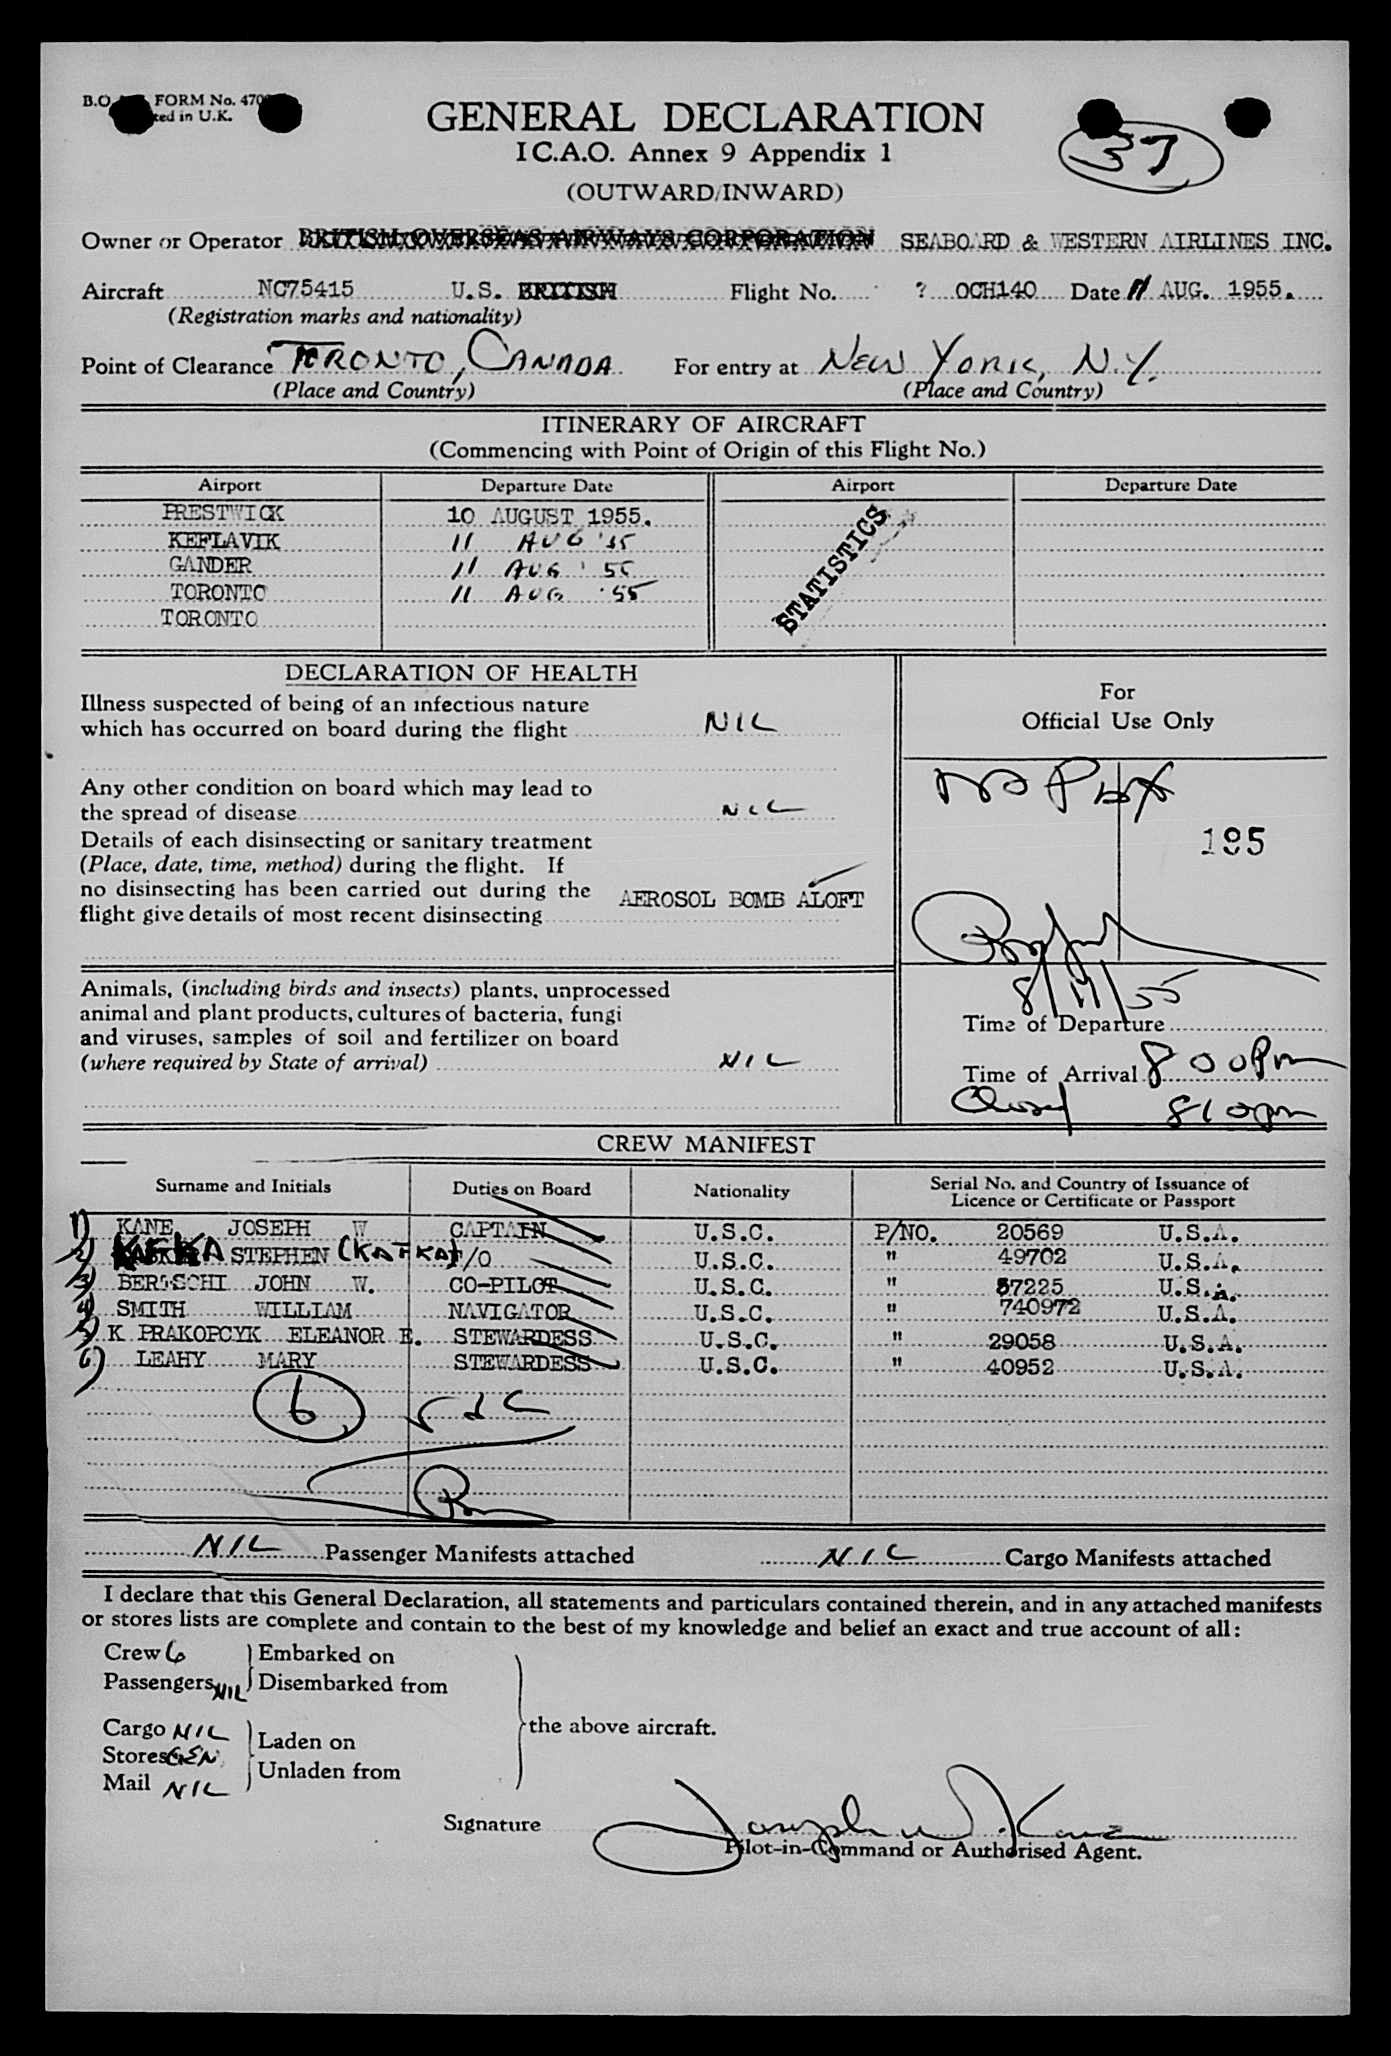 FORM No. 470
ted in U.K.
GENERAL DECLARATION
I C.A.O. Annex 9 Appendix 1
(OUTWARD/INWARD)
37
Owner or Operator BRITISH OVERSEAS AIRWAYS CORPORATION SEABOARD & WESTERN AIRLINES INC.
Aircraft NC75415 U.S. BRITISH Flight No. ? OCH140 Date 11 AUG. 1955.
(Registration marks and nationality)
Point of Clearance TORONTO, CANADA For entry at NEW YORK, N.Y.
(Place and Country) (Place and Country)
ITINERARY OF AIRCRAFT
(Commencing with Point of Origin of this Flight No.)
Airport Departure Date Airport Departure Date
PRESTWICK 10 AUGUST 1955.
KEFLAVIK 11 AUG '55
GANDER 11 AUG '55
TORONTO 11 AUG '55
TORONTO
STATISTICS
DECLARATION OF HEALTH
Illness suspected of being of an infectious nature
which has occurred on board during the flight NIL
Any other condition on board which may lead to
the spread of disease NIL
Details of each disinsecting or sanitary treatment
(Place, date, time, method) during the flight. If
no disinsecting has been carried out during the
flight give details of most recent disinsecting AEROSOL BOMB ALOFT
Animals, (including birds and insects) plants, unprocessed
animal and plant products, cultures of bacteria, fungi
and viruses, samples of soil and fertilizer on board
(where required by State of arrival) NIL
For
Official Use Only
NO
195
8/11/55
Time of Departure
Time of Arrival 8 00 Pm
Closed 810pm
CREW MANIFEST
Surname and Initials Duties on Board Nationality Serial No. and Country of Issuance of
Licence or Certificate or Passport
1) KANE JOSEPH W CAPTAIN U.S.C. P/NO. 20569 U.S.A.
2) KAFKA STEPHEN (KAFKA) F/O U.S.C. " 49702 U.S.A.
3) BERTSCHI JOHN W. CO-PILOT U.S.C. " 57225 U.S.A.
4) SMITH WILLIAM NAVIGATOR U.S.C. " 740972 U.S.A.
5) K PRAKOPCYK ELEANOR E. STEWARDESS U.S.C. " 29058 U.S.A.
6) LEAHY MARY STEWARDESS U.S.C. " 40952 U.S.A.
6
NIL Passenger Manifests attached NIL Cargo Manifests attached
I declare that this General Declaration, all statements and particulars contained therein, and in any attached manifests
or stores lists are complete and contain to the best of my knowledge and belief an exact and true account of all:
Crew 6 Embarked on
Passengers NIL Disembarked from
the above aircraft.
Cargo NIL Laden on
Stores GEN
Mail NIL Unladen from
Signature Joseph W. Kane
Pilot-in-Command or Authorised Agent.